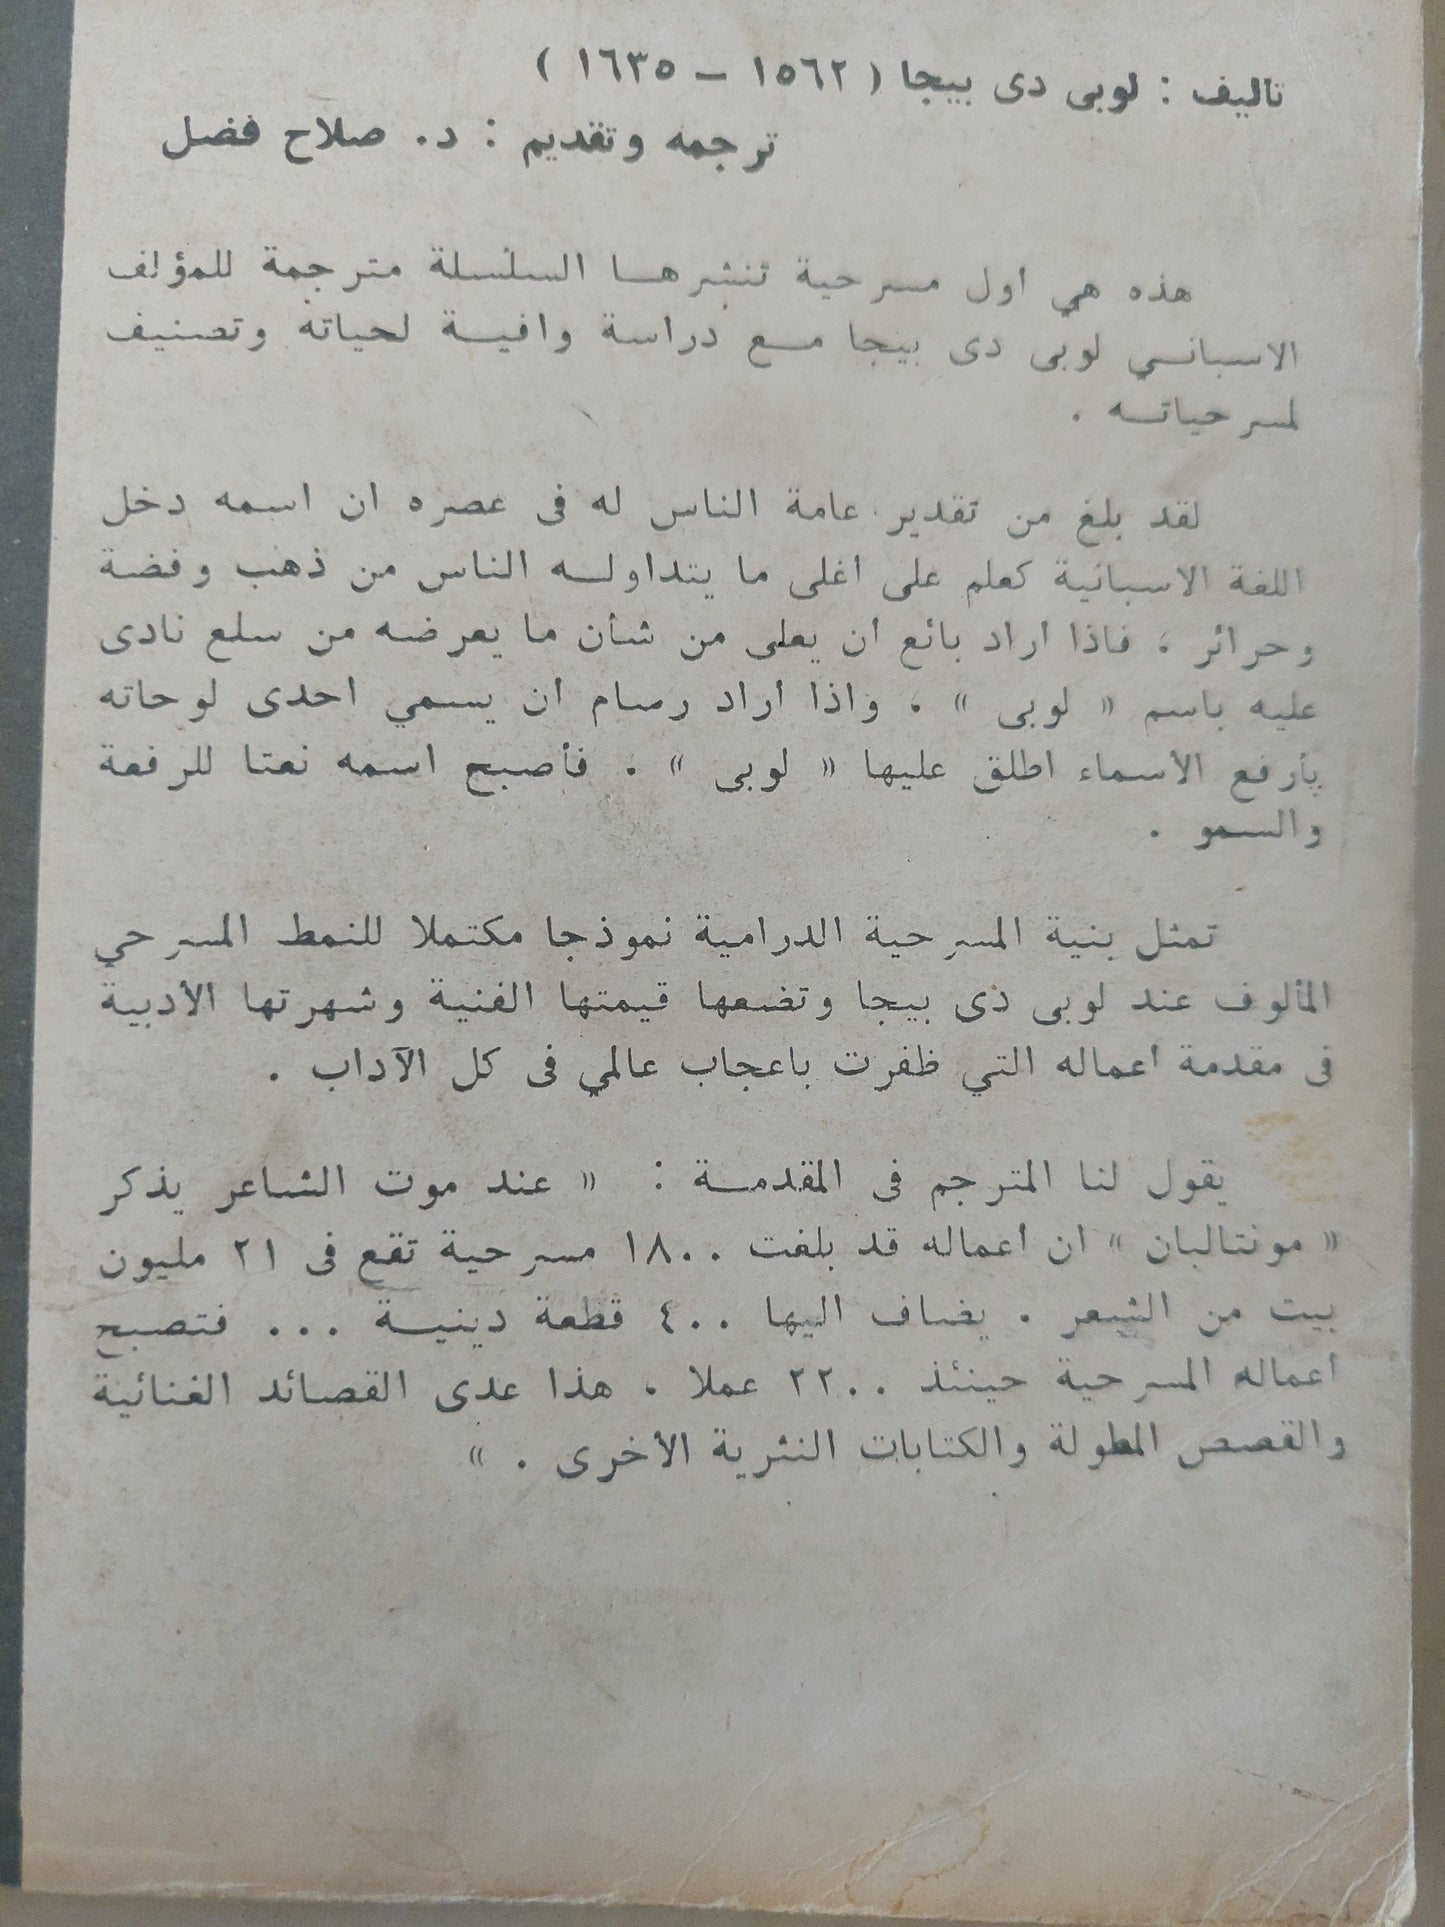 تاليف : لوبى دى بيجا ( ١٥٦٢ – ١٦٣٥ )
ترجمه وتقديم : د. صلاح فضل
هذه هي اول مسرحية تنشرهــا السلسلة مترجمة للمؤلف
الاسبانــي لوبى دى بيجا مــع دراسة وافيــة لحياته وتصنيف
لمسرحياتــه .
لقد بلغ من تقدير عامة الناس له فى عصره ان اسمه دخل
اللغة الاسبانية كعلم على اغلى ما يتداولــه الناس من ذهب وفضة
وحرائر ، فاذا اراد بائع أن يعلى من شأن ما يعرضه من سلع نادى
عليه باسم « لوبى » ، واذا أراد رسام ان يسمي احدى لوحاته
بأرفع الأسماء اطلق عليها « لوبى » ، فأصبح اسمه نعتا للرفعة
والسمو .
تمثل بنية المسرحية الدرامية نموذجا مكتملا للنمط المسرحي
المألوف عند لوبى دى بيجا وتضعها قيمتها الفنية وشهرتها الأدبية
فى مقدمة اعماله التي ظفرت باعجاب عالمي فى كل الآداب .
يقول لنا المترجم فى المقدمــة : « عند موت الشاعر يذكر
« مونتالبان » ان أعماله قد بلغت ١٨٠٠ مسرحية تقع فى ٢١ مليون
بيت من الشعر . يضاف اليها ٤٠٠ قطعة دينيــة ... فتصبح
اعماله المسرحية حينئذ ٢٢٠٠ عملا ، هذا عدى القصائد الغنائية
والقصص المطولة والكتابات النثرية الأخرى . »